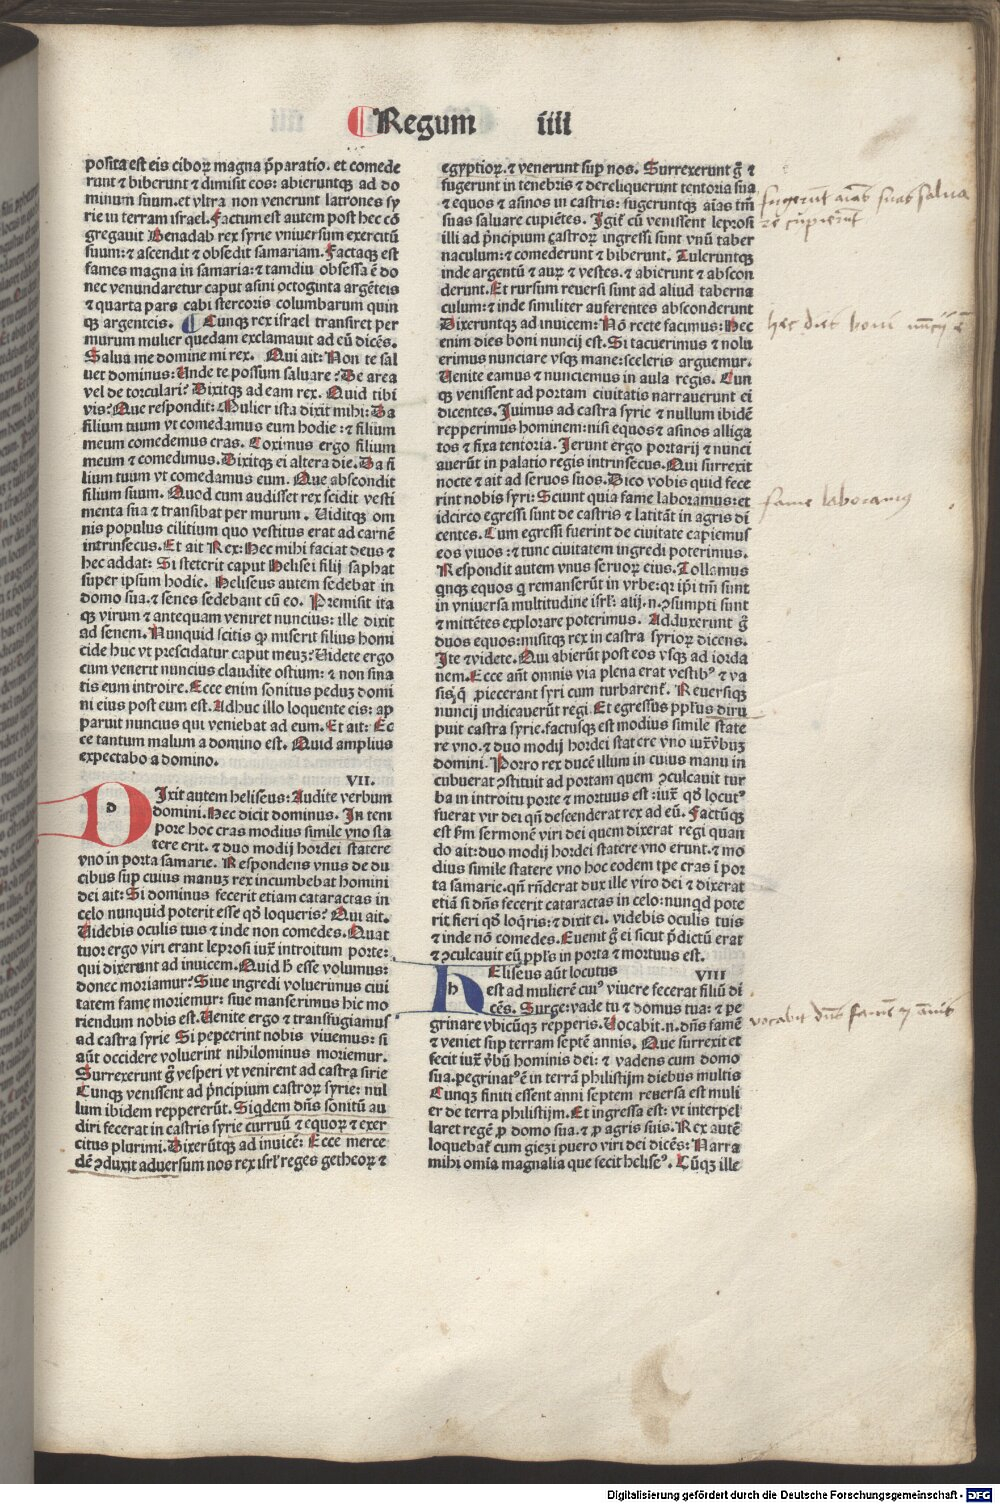 Regum iiii
posita est eis ciboꝝ magna p̄paratio. et comede
runt ⁊ biberunt ⁊ dimisit eos: abieruntqꝫ ad do
minum suum. et vltra non venerunt latrones sy
rie in terram israel. Factum est autem post hec cō
gregauit Benadab rex syrie vniuersum exercitū
suum: ⁊ ascendit ⁊ obsedit samariam. Factaqꝫ est
fames magna in samaria: ⁊ tamdiu obsessa ē do
nec venundaretur caput asini octoginta argēteis
⁊ quarta pars cabi stercoris columbarum quin
qꝫ argenteis. ¶ Cunqꝫ rex israel transiret per
murum mulier quedam exclamauit ad eū dicēs.
Salua me domine mi rex. Qui ait: Non te sal
uet dominus: Unde te possum saluare? De area
vel de torculari? Dixitqꝫ ad eam rex. Quid tibi
vis? Que respondit: Mulier ista dixit mihi: Da
filium tuum vt comedamus eum hodie: ⁊ filium
meum comedemus cras. Coximus ergo filium
meum ⁊ comedimus. Dixitqꝫ ei altera die. Da fi
lium tuum vt comedamus eum. Que abscondit
filium suum. Quod cum audisset rex scidit vesti
menta sua ⁊ transibat per murum. Uiditqꝫ om
nis populus cilitium quo vestitus erat ad carnē
intrinsecus. Et ait Rex: Hec mihi faciat deus ⁊
hec addat: Si steterit caput Helisei filij saphat
super ipsum hodie. Heliseus autem sedebat in
domo sua. ⁊ senes sedebant cū eo. Premisit ita
qꝫ virum ⁊ antequam veniret nuncius: ille dixit
ad senem. Nunquid scitis ꝙ miserit filius homi
cide huc vt prescidatur caput meuꝫ? Uidete ergo
cum venerit nuncius claudite ostium: ⁊ non sina
tis eum introire. Ecce enim sonitus peduꝫ domi
ni eius post eum est. Adhuc illo loquente eis: ap
paruit nuncius qui veniebat ad eum. Et ait: Ec
ce tantum malum a domino est. Quid amplius
expectabo a domino.
VII.
d
Ixit autem heliseus: Audite verbum
domini. Hec dicit dominus. In tem
pore hoc cras modius simile vno sta
tere erit. ⁊ duo modij hordei statere
vno in porta samarie. Respondens vnus de du
cibus sup cuius manuꝫ rex incumbebat homini
dei ait: Si dominus fecerit etiam cataractas in
celo nunquid poterit esse qđ loqueris? Qui ait.
Uidebis oculis tuis ⁊ inde non comedes. Quat
tuor ergo viri erant leprosi iux̄ introitum porte:
qui dixerunt ad inuicem. Quid h̄ esse volumus:
donec moriamur? Siue ingredi voluerimus ciui
tatem fame moriemur: siue manserimus hic mo
riendum nobis est. Uenite ergo ⁊ transfugiamus
ad castra syrie Si pepcerint nobis viuemus: si
aūt occidere voluerint nihilominus moriemur.
Surrexerunt g̊ vesperi vt venirent ad castra sirie
Cunqꝫ venissent ad p̄ncipium castroꝝ syrie: nul
lum ibidem reppererūt. Siqdem dn̄s sonitū au
diri fecerat in castris syrie curruū ⁊ equoꝝ ⁊ exer
citus plurimi. Dixerūtqꝫ ad inuicē: Ecce merce
dē ꝯduxit aduersum nos rex isrl̄ reges getheoꝝ ⁊
egyptioꝝ. ⁊ venerunt sup nos. Surrexerunt g̊ ⁊
fugerunt in tenebris ⁊ dereliquerunt tentoria sua
⁊ equos ⁊ asinos in castris: fugeruntqꝫ aīas tm̄
suas saluare cupiētes. Igit̄ cū venissent leprosi
illi ad p̄ncipium castroꝝ ingressi sunt vnū taber
naculum: ⁊ comederunt ⁊ biberunt. Tuleruntqꝫ
inde argentū ⁊ auꝝ ⁊ vestes. ⁊ abierunt ⁊ abscon
derunt. Et rursum reuersi sunt ad aliud taberna
culum: ⁊ inde similiter auferentes absconderunt
Dixeruntqꝫ ad inuicem: Nō recte facimus: Hec
enim dies boni nuncij est. Si tacuerimus ⁊ nolu
erimus nunciare vsqꝫ mane: sceleris arguemur.
Uenite eamus ⁊ nunciemus in aula regis. Cun
qꝫ venissent ad portam ciuitatis narrauerunt ei
dicentes. Iuimus ad castra syrie ⁊ nullum ibidē
repperimus hominem: nisi equos ⁊ asinos alliga
tos ⁊ fixa tentoria. Ierunt ergo portarij ⁊ nunci
auerūt in palatio regis intrinsecus. Qui surrexit
nocte ⁊ ait ad seruos suos. Dico vobis quid fece
rint nobis syri: Sciunt quia fame laboramus: et
idcirco egressi sunt de castris ⁊ latitāt in agris di
centes. Cum egressi fuerint de ciuitate capiemus
eos viuos: ⁊ tunc ciuitatem ingredi poterimus.
Respondit autem vnus seruoꝝ eius. Tollamus
qnqꝫ equos q remanserūt in vrbe: qꝛ ip̄i tm̄ sunt
in vniuersa multitudine isrl̄: alij .n. ꝯsumpti sunt
⁊ mittētes explorare poterimus. Adduxerunt g̊
duos equos: misitqꝫ rex in castra syrioꝝ dicens.
Ite ⁊ videte. Qui abierūt post eos vsqꝫ ad iorda
nem. Ecce aūt omnis via plena erat vestibꝰ ⁊ va
sis: q̄ ꝓiecerant syri cum turbarent̄. Reuersiqꝫ
nuncij indicauerūt regi Et egressus ppl̄us diru
puit castra syrie. factusqꝫ est modius simile state
re vno. ⁊ duo modij hordei statere vno iux̄ v̄buꝫ
domini. Porro rex ducē illum in cuius manu in
cubuerat ꝯstituit ad portam quem ꝯculcauit tur
ba in introitu porte ⁊ mortuus est: iux̄ qđ locutꝰ
fuerat vir dei qn̄ descenderat rex ad eū. Factūqꝫ
est s̄m sermonē viri dei quem dixerat regi quan
do ait: duo modij hordei statere vno erunt. ⁊ mo
dius simile statere vno hoc eodem tpe cras ī por
ta samarie. qn̄ rn̄derat dux ille viro dei ⁊ dixerat
etiā si dn̄s fecerit cataractas in celo: nunqd pote
rit fieri qđ loq̄ris: ⁊ dixit ei. videbis oculis tuis
⁊ inde nō comedes. Euenit g̊ ei sicut p̄dictū erat
⁊ ꝯculcauit eū ppl̄s in porta ⁊ mortuus est.
h
Eliseus aūt locutus VIII
est ad mulierē cuiꝰ viuere fecerat filiū di
cēs. Surge: vade tu ⁊ domus tua: ⁊ pe
grinare vbicūqꝫ repperis. Uocabit .n. dn̄s famē
⁊ veniet sup terram septē annis. Que surrexit et
fecit iux̄ v̄bū hominis dei: ⁊ vadens cum domo
sua. pegrinatꝰ ē in terrā philistijm diebus multis
Cunqꝫ finiti essent anni septem reuersa est muli
er de terra philistijm. Et ingressa est: vt interpel
laret regē ꝓ domo sua. ⁊ ꝓ agris suis. Rex autē
loquebat̄ cum giezi puero viri dei dicēs: Narra
mihi omīa magnalia que fecit heliseꝰ. Cūqꝫ ille
fugerūt aīas suas salua
re cupierūt
hec dies boni nūcij ē
fame laboramꝰ
vocabit dn̄s famē 7 annis
Digitalisierung gefördert durch die Deutsche Forschungsgemeinschaft - DFG